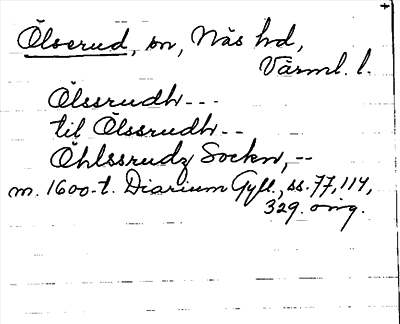 Ölserud, sn, Näs hd,
Värml. l.
Ölssrudh---
til Ölssrudh--
Öhlssrudz Sockn,--
m. 1600-t. Diarium Gyll., ss. 77, 114,
329. orig.